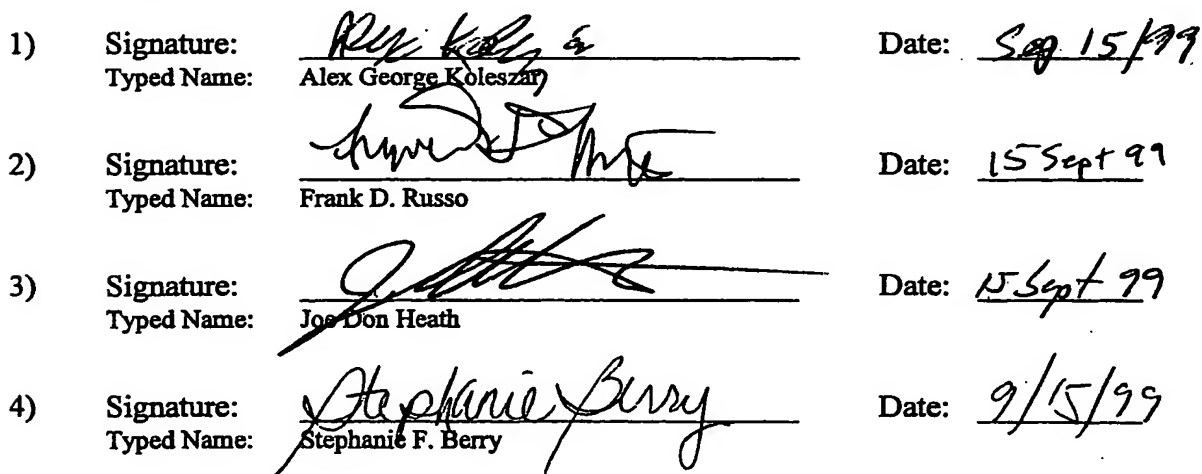 1) Signature: Date: 15/99
Typed Name: Alex George Koleszar
2) Signature: Date: 15 Sept 99
Typed Name: Frank D. Russo
3) Signature: Date: 15 Sept 99
Typed Name: Joe Don Heath
4) Signature: Stephanie Berry Date: 9/15/99
Typed Name: Stephanie F. Berry